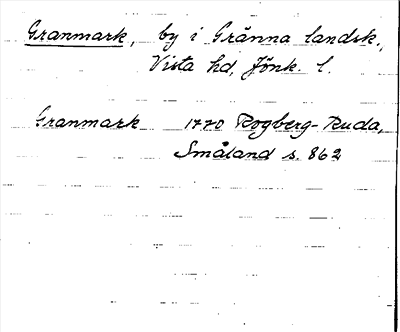 Granmark, by i Gränna landsk.,
Vista hd, Jönk. l.
Granmark 1770 Rogberg-Ruda,
Småland s. 862